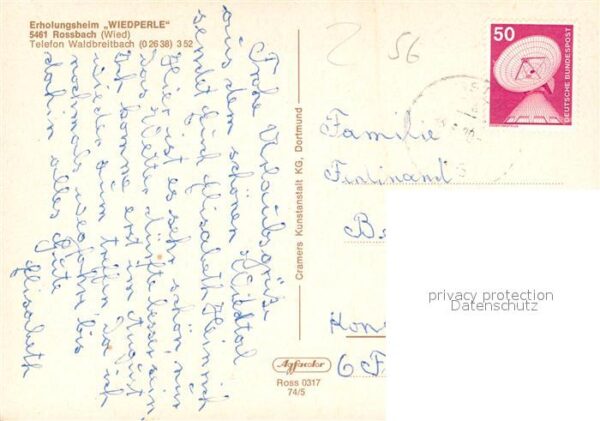 Erholungsheim „WIEDPERLE"
5461 Rossbach (Wied)
Telefon Waldbreitbach (0 26 38) 3 52
Frohe Urlaubsgrüße
aus dem schönen Wiedtal
sendet Euch Elisabeth Heinrich
Hier ist es sehr schön, nur
das Wetter dürfte besser sein
Ich komme erst im August
wieder zum treffen da ich
nochmals wegfahre bis
dahin alles Gute
Elisabeth
Cramers Kunstanstalt KG, Dortmund
Agfacolor
Ross 0317
74/5
56
50
DEUTSCHE BUNDESPOST
Familie
Ferdinand
6 F
privacy protection
Datenschutz